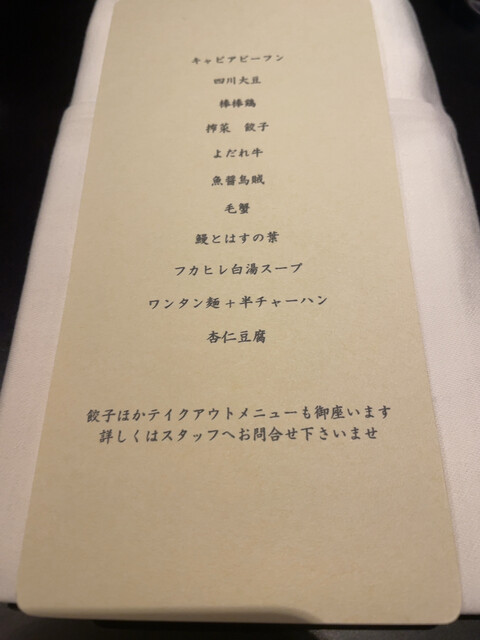 キャビアビーフン
四川大豆
棒棒鶏
搾菜　餃子
よだれ牛
魚醤烏賊
毛蟹
鰻とはすの葉
フカヒレ白湯スープ
ワンタン麺＋半チャーハン
杏仁豆腐
餃子ほかテイクアウトメニューも御座います
詳しくはスタッフへお問合せ下さいませ